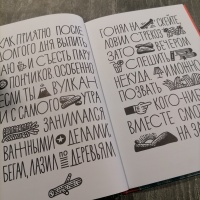 КАК ПРИЯТНО ПОСЛЕ
ДОЛГОГО ДНЯ ВЫПИТЬ
ЧАЮ И СЪЕСТЬ ПАРУ
ПОНЧИКОВ ОСОБЕННО
ЕСЛИ ТЫ ВУЛКАН
И С САМОГО УТРА
ЗАНИМАЛСЯ
ВАЖНЫМИ ДЕЛАМИ:
БЕГАЛ, ЛАЗИЛ ПО ДЕРЕВЬЯМ,
ГОНЯЛ НА СКЕЙТЕ,
ЛОВИЛ СТРЕКОЗ
ЗАТО ВЕЧЕРОМ
СПЕШИТЬ
НЕКУДА И МОЖНО
ПОЗВАТЬ
КОГО-НИ
ВМЕСТЕ СМО
НА ЗА